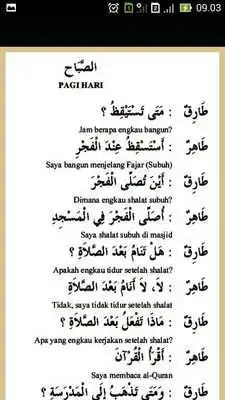 09.03
الصَّبَاح
PAGI HARI
طَارِقٌ : مَتَى تَسْتَيْقِظُ ؟
Jam berapa engkau bangun?
طَاهِرٌ : أَسْتَيْقِظُ عِنْدَ الْفَجْرِ
Saya bangun menjelang Fajar (Subuh)
طَارِقٌ : أَيْنَ تُصَلِّى الْفَجْرَ
Dimana engkau shalat subuh?
طَاهِرٌ : أُصَلِّى الْفَجْرَ فِي الْمَسْجِدِ
Saya shalat subuh di masjid
طَارِقٌ : هَلْ تَنَامُ بَعْدَ الصَّلاَةِ ؟
Apakah engkau tidur setelah shalat?
طَاهِرٌ : لاَ، لاَ أَنَامُ بَعْدَ الصَّلاَةِ
Tidak, saya tidak tidur setelah shalat
طَارِقٌ : مَاذَا تَفْعَلُ بَعْدَ الصَّلاَةِ ؟
Apa yang engkau kerjakan setelah shalat?
طَاهِرٌ : أَقْرَأُ الْقُرْآنَ
Saya membaca al-Quran
طَارِقٌ : وَمَتَى تَذْهَبُ إِلَى الْمَدْرَسَةِ ؟